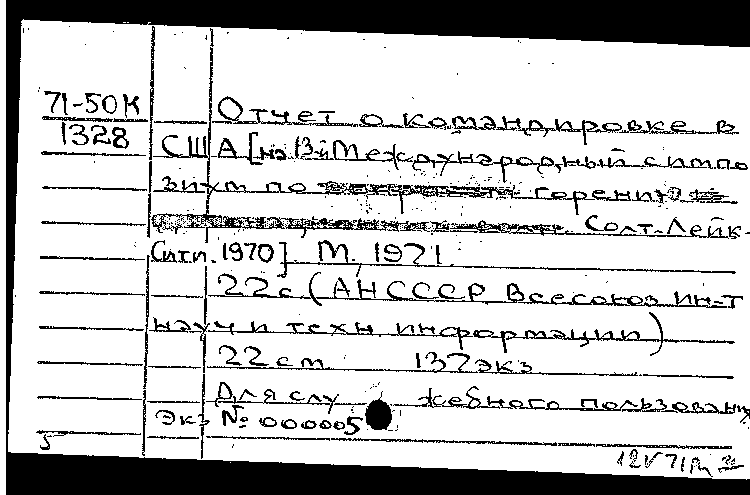 71-50К Отчет о командировке в
1328 США [на 13-й Международный симпо
зиум по горению
Солт-Лейк-
Сити. 1970]. М, 1971
22с (АН СССР Всесоюз ин-т
науч и техн информации)
22 см 137 экз
Для слу жебного пользования
экз № 000005
5 12 V 71